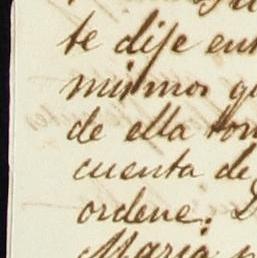 te dije en
mismos q
de ella tom
cuenta de
ordene.
Maria